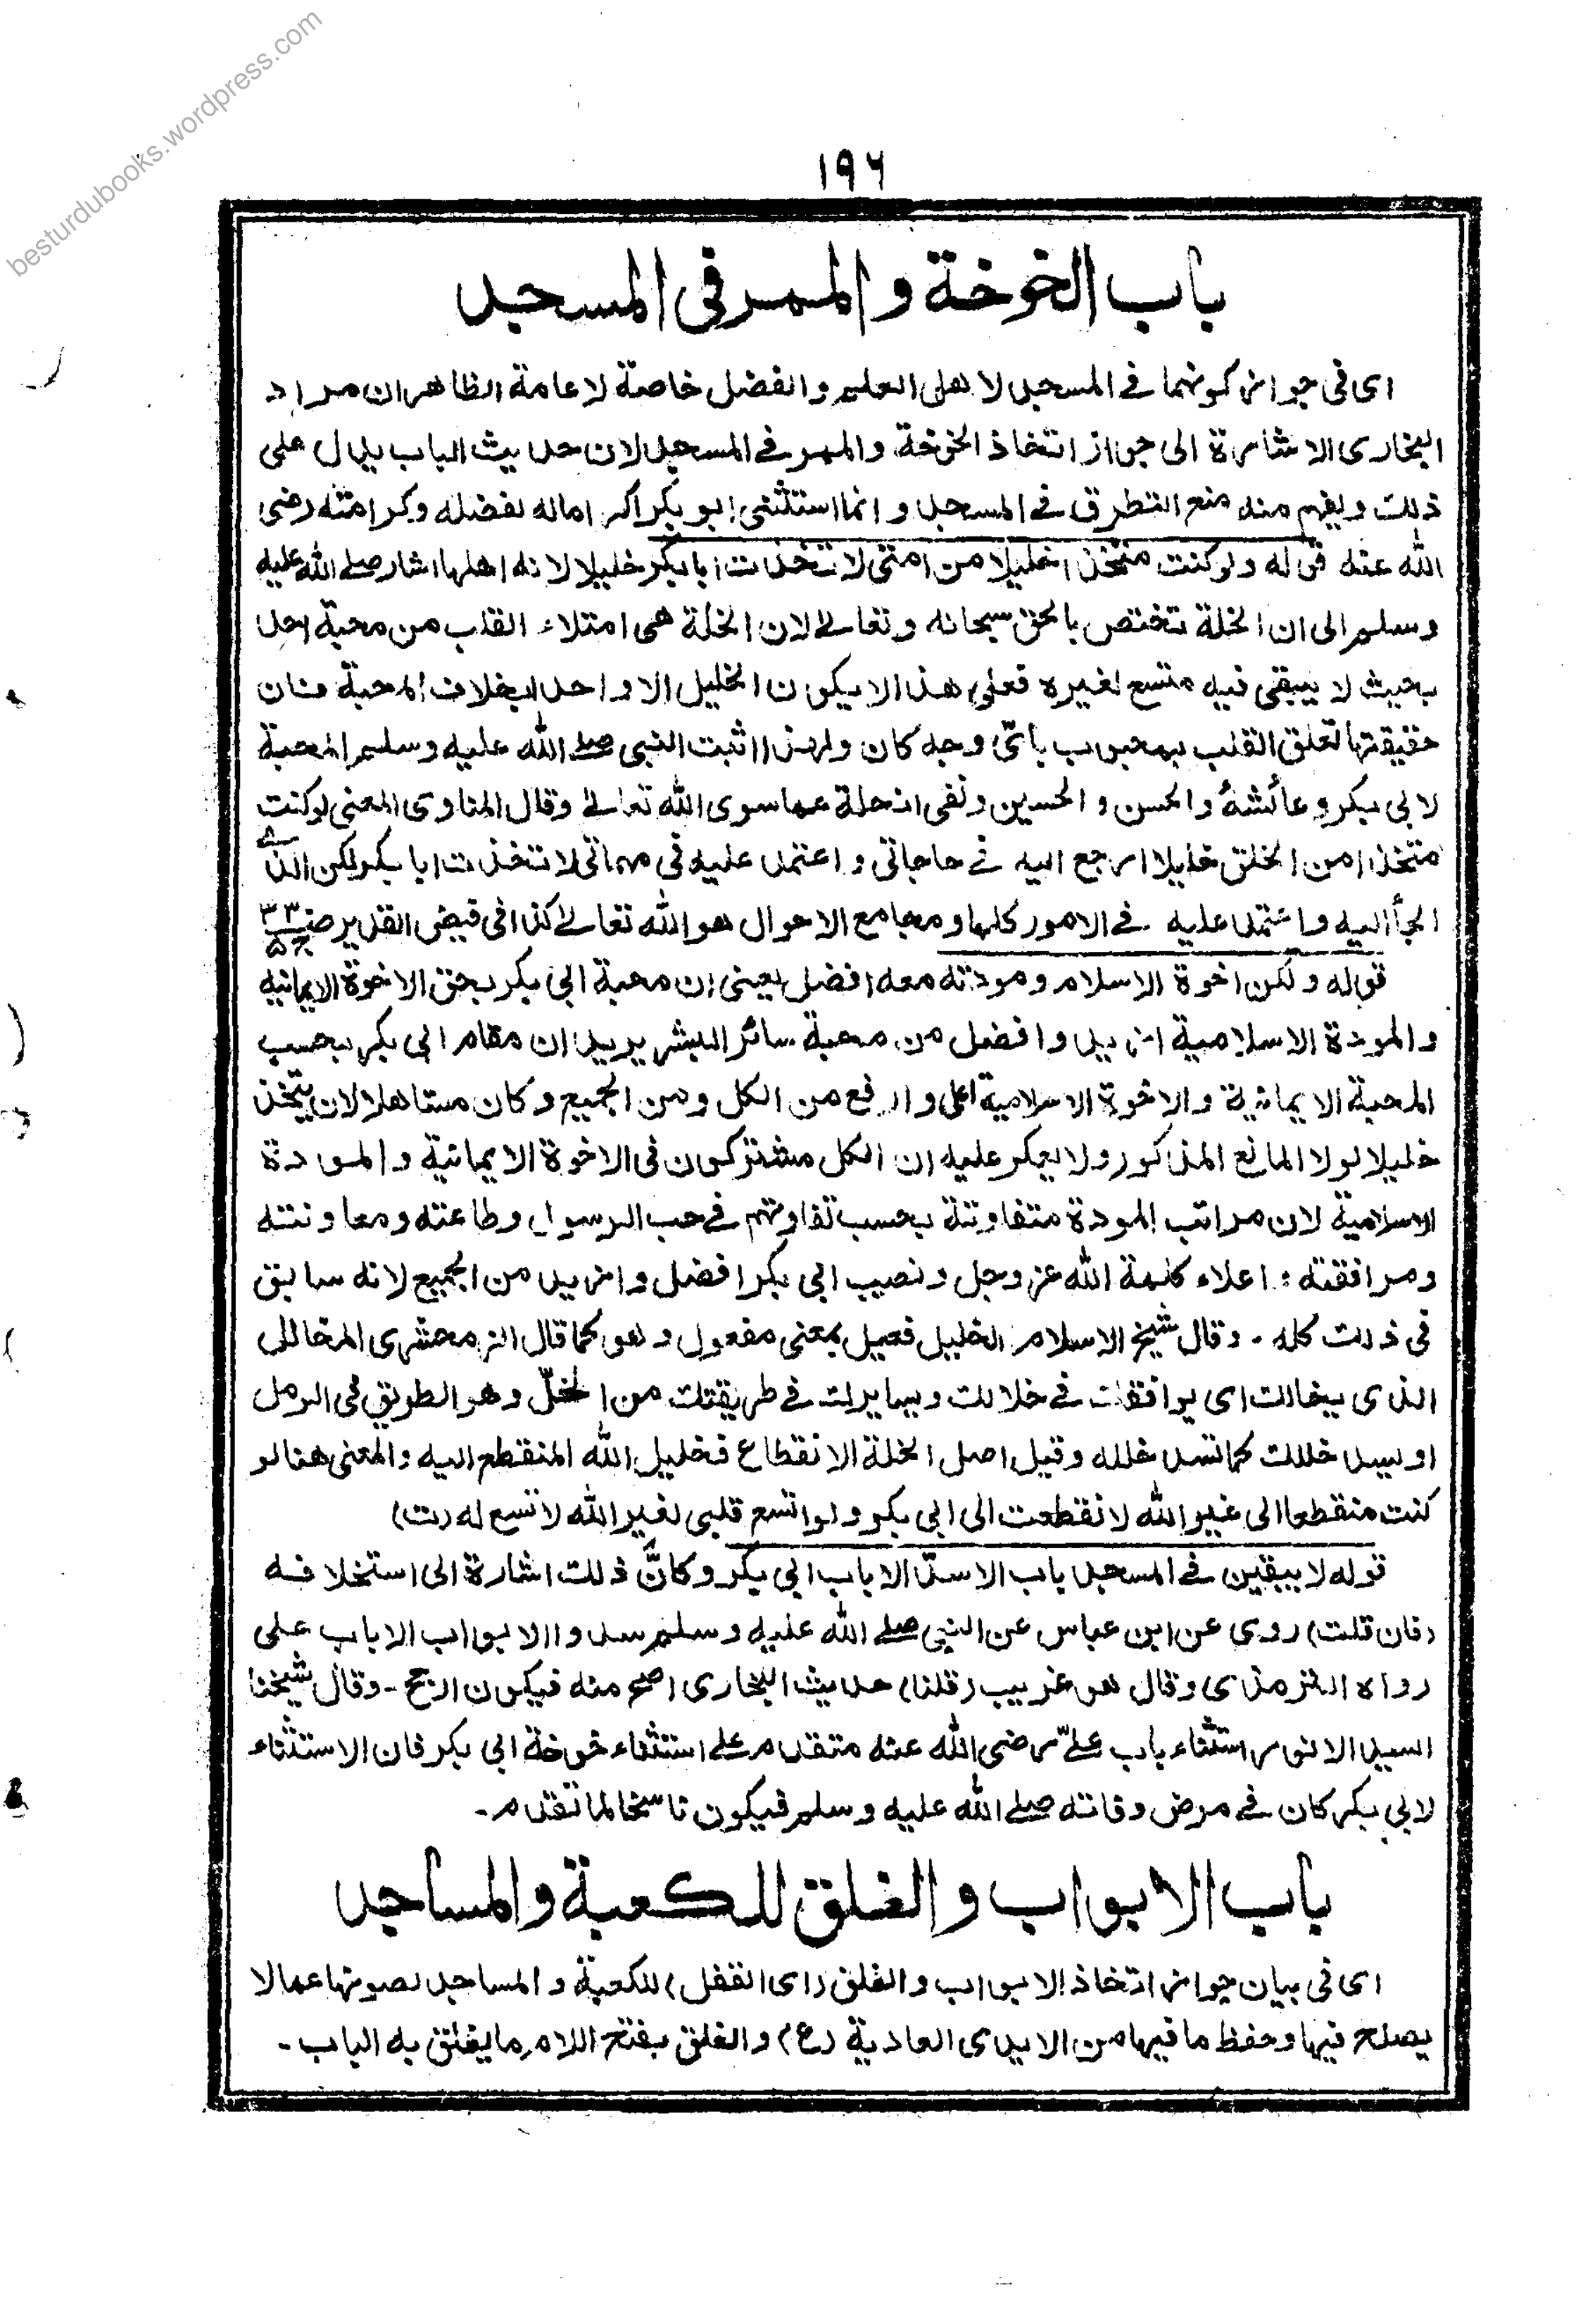 besturdubooks.wordpress.com
١٩٦
باب الخوخة والممر فى المسجد
اى فى جواز كونهما فے المسجد لاهل العلم والفضل خاصة لا عامة الظاهر ان مراد
البخارى الاشارة الى جواز اتخاذ الخوخة والممر فے المسجد لان حديث الباب يدل على
ذلك ويفهم منه منع التطرق فے المسجد وانما استثنى ابو بكر اكراما له لفضله وكرامته رضى
الله عنه قوله ولو كنت متخذا خليلا من امتى لاتخذت ابا بكر خليلا لانه اهلها اشار صلے الله عليه
وسلم الى ان الخلة تختص بالحق سبحانه وتعالے لان الخلة هى امتلاء القلب من محبة احد
بحيث لا يبقى فيه متسع لغيره فعلى هذا لا يكون الخليل الا واحدا بخلاف المحبة فان
حقيقتها تعلق القلب بمحبوب باىّ وجه كان ولهذا اثبت النبى صلے الله عليه وسلم المحبة
لابى بكر وعائشة والحسن والحسين ونفى الخلة عما سوى الله تعالے وقال المناوى المعنى لو كنت
متخذا من الخلق خليلا ارجع اليه فے حاجاتى واعتمد عليه فى مهماتى لاتخذت ابا بكر لكن الذے
الجأ اليه واعتمد عليه فے الامور كلها ومجامع الاحوال هو الله تعالے كذا فى فيض القدير صـ٣٣ ج٥
قوله ولكن اخوة الاسلام ومودته معه افضل يعنى ان محبة ابى بكر بحق الاخوة الايمانيه
والمودة الاسلامية ازيد وافضل من محبة سائر البشر يريد ان مقام ابى بكر بحسب
المحبة الايمانية والاخوة الاسلامية اعلى وارفع من الكل ومن الجميع وكان مستاهلا لان يتخذ
خليلا لولا المانع المذكور ولا يعكر عليه ان الكل مشتركون فى الاخوة الايمانية والمودة
الاسلامية لان مراتب المودة متفاوتة بحسب تفاوتهم فے حب الرسول وطاعته ومعاونته
ومرافقته : اعلاء كلمة الله عز وجل ونصيب ابى بكر افضل وازيد من الجميع لانه سابق
فى ذلك كله - وقال شيخ الاسلام الخليل فعيل بمعنى مفعول وهو كما قال الزمحشرى المخالل
الذى يخالك اى يوافقك فے خلالك ويسايرك فے طريقتك من الخلّ وهو الطريق فى الرمل
او يسد خللك كما تسد خلله وقيل اصل الخلة الانقطاع فخليل الله المنقطع اليه والمعنى هنا لو
كنت منقطعا الى غير الله لانقطعت الى ابى بكر ولو اتسع قلبى لغير الله لاتسع له (ت)
قوله لا يبقين فے المسجد باب الا سدّ الا باب ابى بكر وكانَّ ذلك اشارة الى استخلافه
(فان قلت) روى عن ابن عباس عن النبى صلے الله عليه وسلم سدوا الابواب الا باب على
رواه الترمذى وقال هو غريب (قلنا) حديث البخارى اصح منه فيكون ارجح - وقال شيخنا
السيد الانور استثناء باب علےّ رضى الله عنه متقدم علے استثناء خوخة ابى بكر فان الاستثناء
لابى بكر كان فے مرض وفاته صلے الله عليه وسلم فيكون ناسخا لما تقدم -
باب الابواب والغلق للكعبة والمساجد
اى فى بيان جواز اتخاذ الابواب والغلق (اى القفل) للكعبة والمساجد لصونها عما لا
يصلح فيها وحفظ ما فيها من الايدى العادية (ع) والغلق بفتح اللام ما يغلق به الباب -